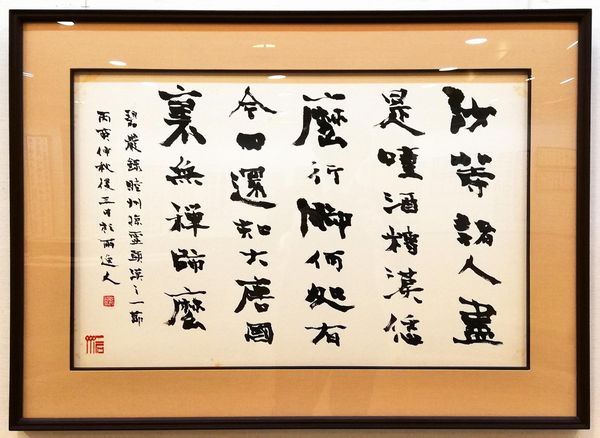 汝等諸人盡
是噇酒糟漢恁
麼行脚何処有
今日還知大唐國
裏無禪師麼
碧巖録睦州掠虚頭漢之一節
丙寅仲秋後三日於